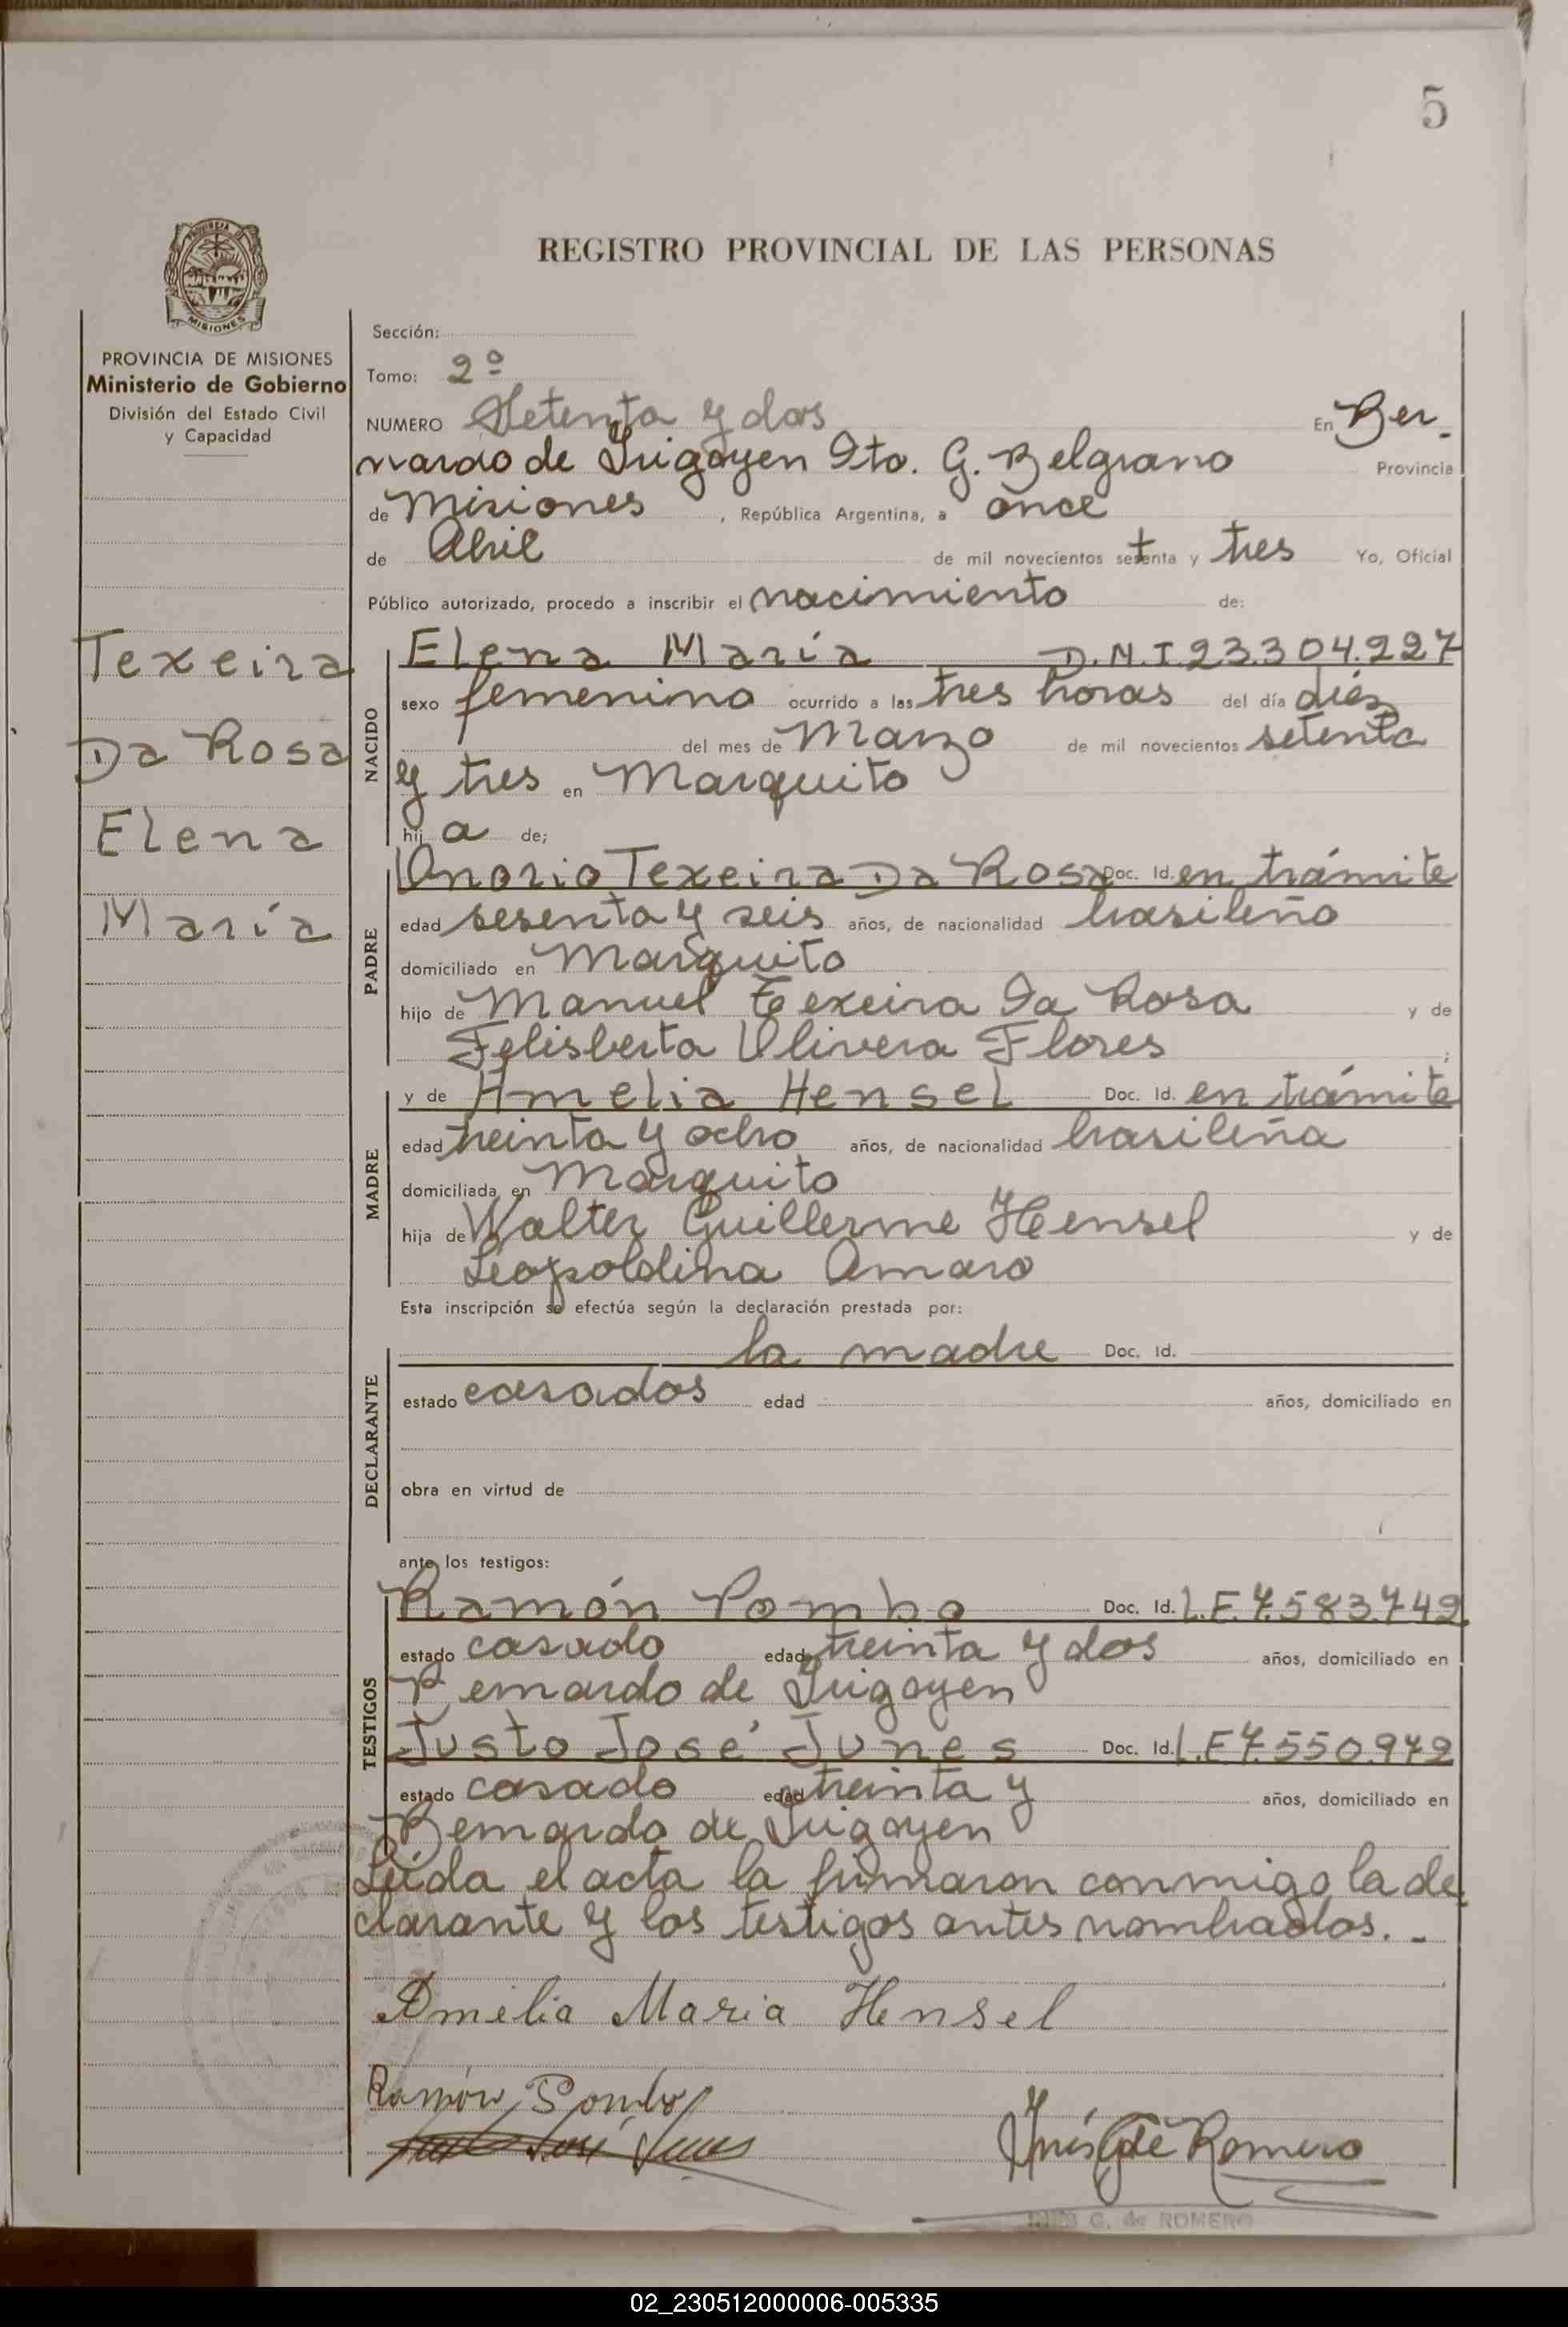 5
REGISTRO PROVINCIAL DE LAS PERSONAS
PROVINCIA DE MISIONES
Ministerio de Gobierno
División del Estado Civil
y Capacidad
Texeira
Da Rosa
Elena
María
Sección:
Tomo: 2º
NUMERO Setenta y dos En Ber-
nardo de Irigoyen Dto. G. Belgrano Provincia
de Misiones, República Argentina, a once
de Abril de mil novecientos setenta y tres Yo, Oficial
Público autorizado, procedo a inscribir el nacimiento de:
NACIDO
Elena María D.N.I 23.304.227
sexo femenino ocurrido a las tres horas del día diéz
del mes de Marzo de mil novecientos setenta
y tres en Marquito
hij a de;
PADRE
Onorio Texeira Da Rosa Doc. Id. en trámite
edad sesenta y seis años, de nacionalidad brasileño
domiciliado en Marquito
hijo de Manuel Texeira Da Rosa y de
Felisberta Olivera Flores;
MADRE
y de Amelia Hensel Doc. Id. en trámite
edad treinta y ocho años, de nacionalidad brasileña
domiciliada en Marquito
hija de Walter Guillerme Hensel y de
Leopoldina Amaro
Esta inscripción se efectúa según la declaración prestada por:
DECLARANTE
la madre Doc. Id.
estado casados edad años, domiciliado en
obra en virtud de
ante los testigos:
TESTIGOS
Ramón Pombo Doc. Id. L.E. 7.583.749
estado casado edad treinta y dos años, domiciliado en
Bernardo de Irigoyen
Justo José Junes Doc. Id. L.E 7.550.979
estado casado edad treinta y años, domiciliado en
Bernardo de Irigoyen
Leída el acta la firmaron conmigo la de-
clarante y los testigos antes nombrados.-
Amelia Maria Hensel
Ramón Pombo
Justo José Junes
Inés G de Romero
INES G. de ROMERO
02_230512000006-005335